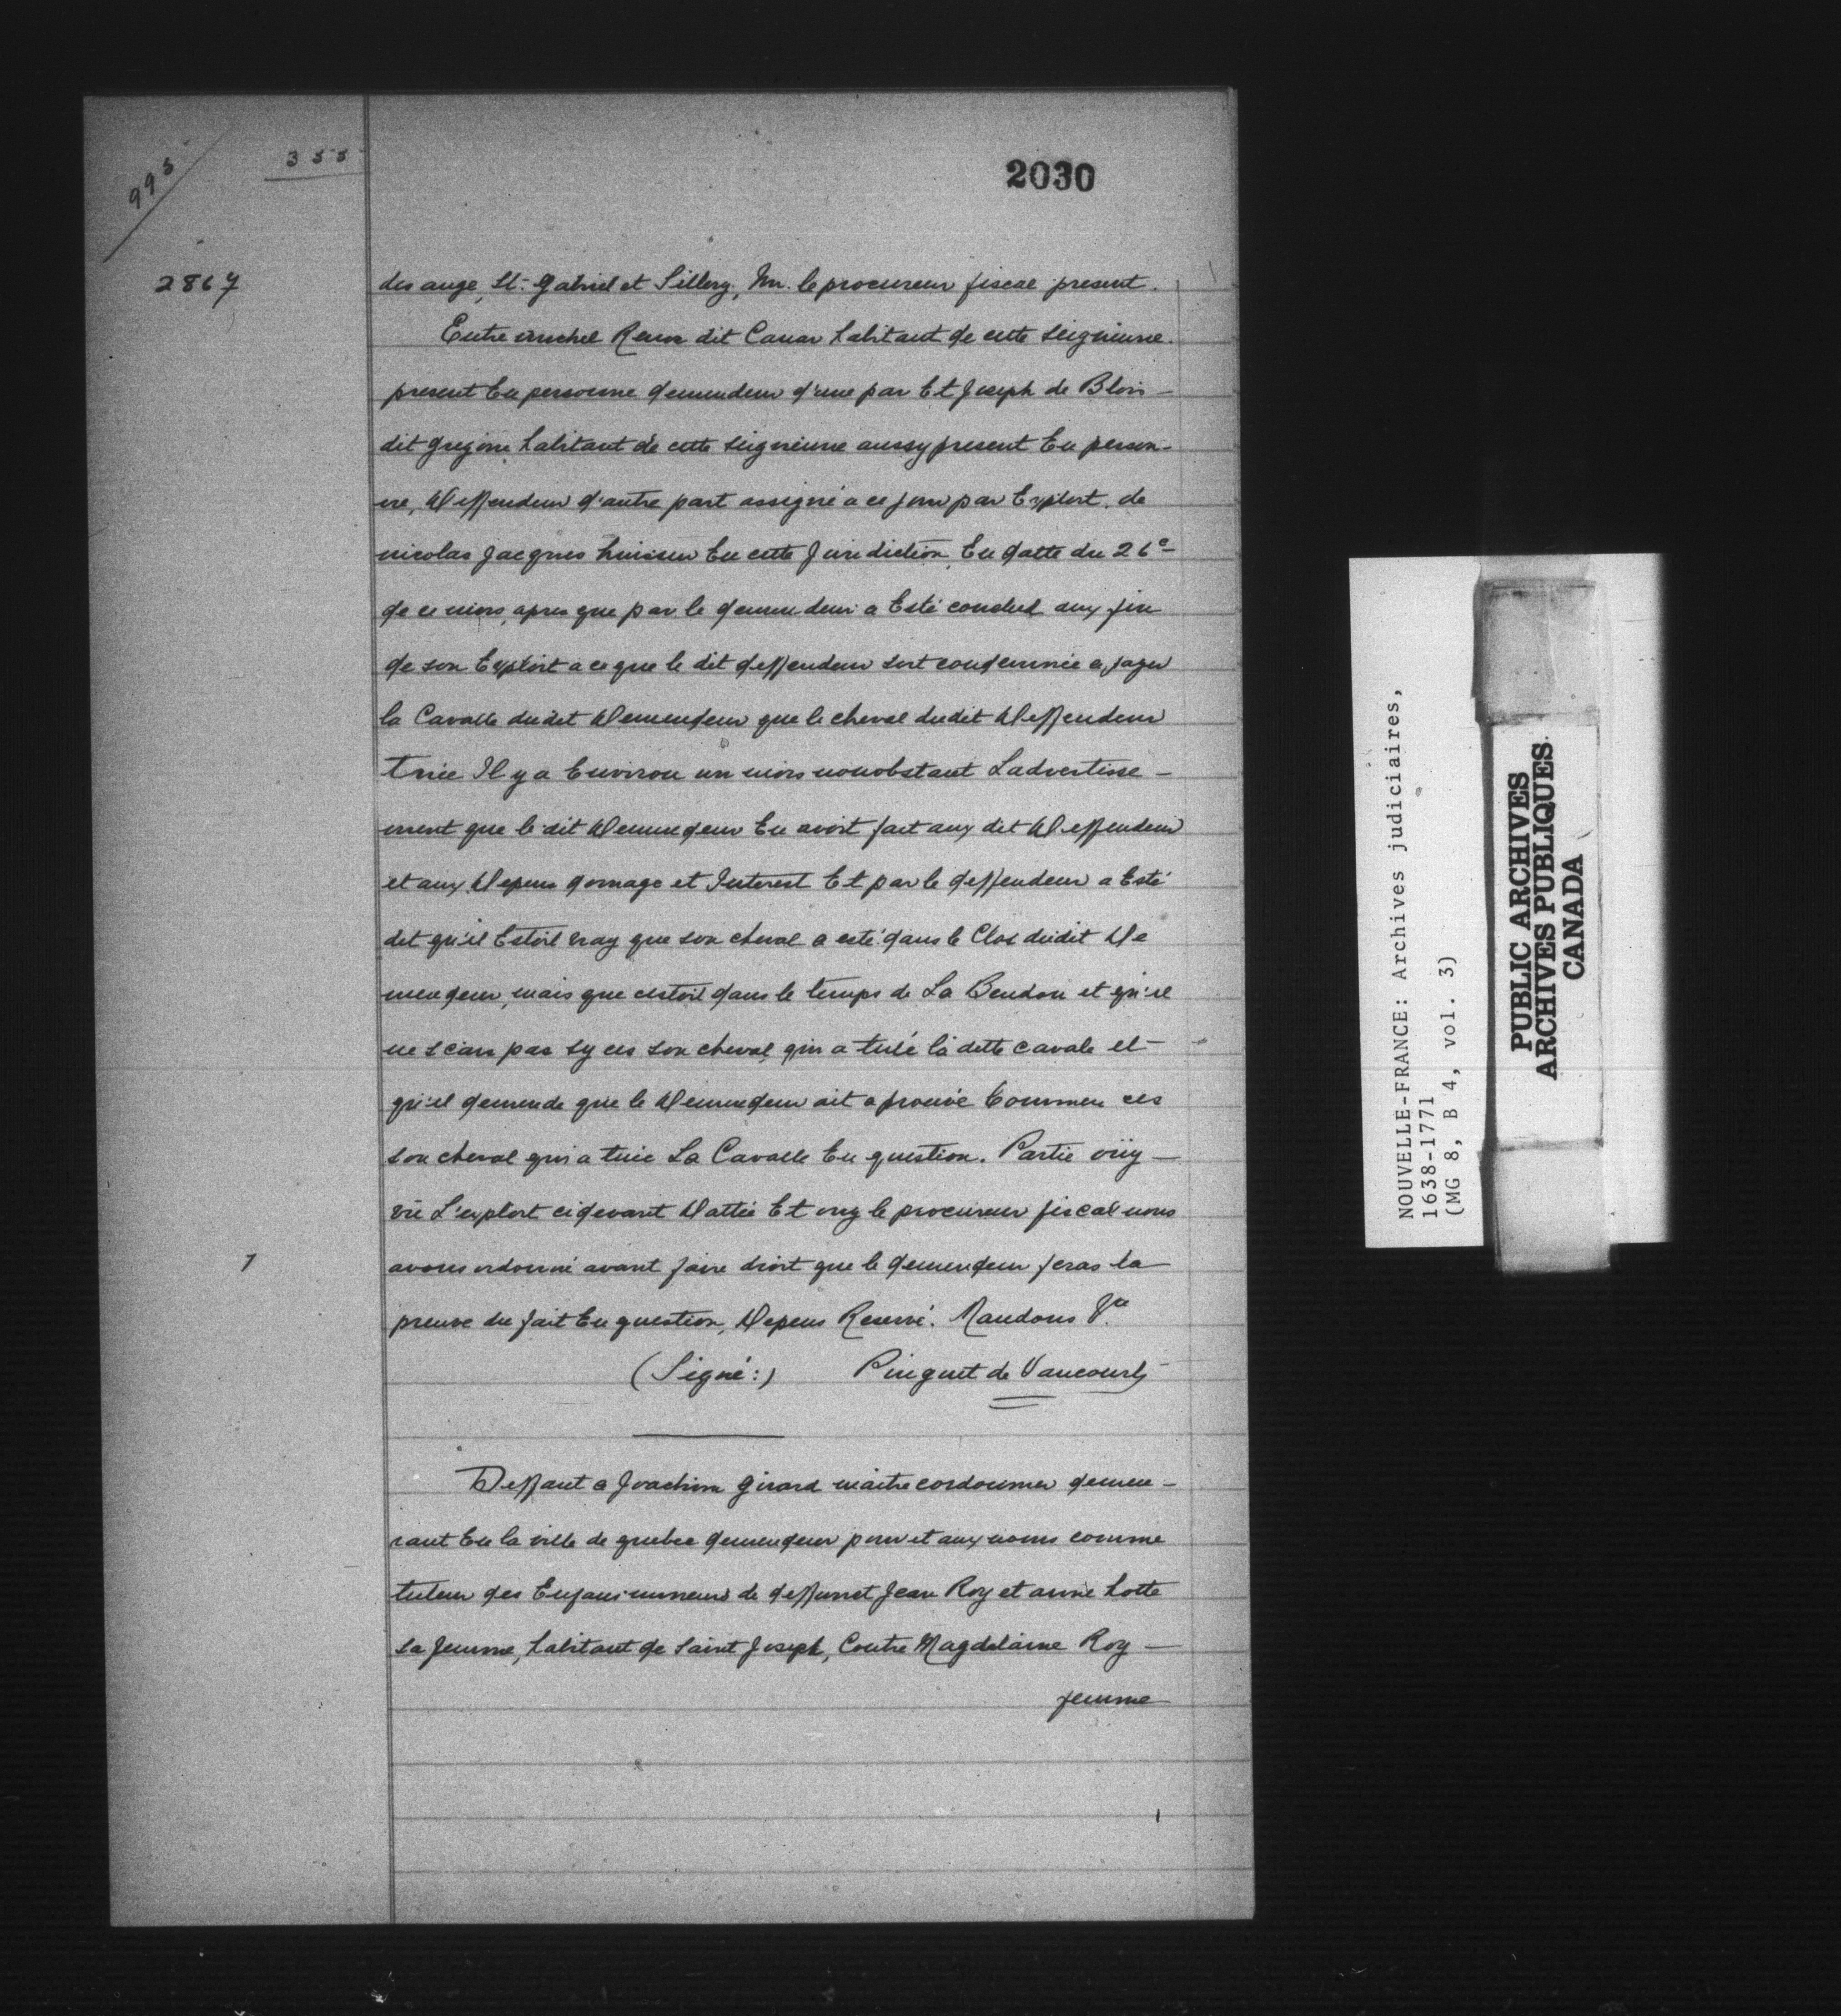 993
355
2030
2867
des ange, St. Gabriel et Sillery, Mr. le procureur fiscal present.
Entre michel Renr dit Canar habitant de cette seigrieurie.
present En personne demendeur d'une par Et Joseph de Blois -
dit gregoire habitant de cette seigneurie aussy present En person-
ne, Deffendeur d'autre part assigné a ce jour par Exploit. de
nicolas Jacques huissier En cette Jurediction En datte du 26e -
de ce mois, apres que par le demendeur a Esté conclud aux fin
de son Exploit a ce que le dit deffendeur soit condemnée a payer
la Cavalle dudit Demendeur que le cheval dudit Deffendeur
tuée Il y a Environ un mois nonobstant Ladvertisse -
ment que le dit Demendeur En avoit fait aux dit Deffendeur
et aux Depens domage et Interest Et par le deffendeur a Esté
dit qu'il Estoit vray que son cheval a esté dans le Clos dudit De
mendeur, mais que cestoit dans le temps de La Bendon et qu'il
ne scais pas sy ces son cheval qui a tué la ditte cavale et -
qu'il demende que le Demendeur ait a prouvé Commen ces
son cheval qui a tuée La Cavalle En question. Partie oüy -
vü L'exploit cidevant Dattée Et ouy le procureur fiscal nous
1
avons ordonné avant faire droit que le demendeur feras la
preuve du fait En question, Depens Reservé. Mandons &a.
(Signé:) Pinguet de Vaucourt
Deffaut a Joachim girard maitre cordonnier demeu -
rant En la ville de quebec demendeur pour et aux noms comme
tuteur des Enfans mineurs de deffunct Jean Roy et anne hotte
sa femme, habitant de Saint Joseph, Contre Magdelaine Roy -
femme
NOUVELLE-FRANCE: Archives judiciaires,
1638-1771
(MG 8, B 4, vol. 3)
PUBLIC ARCHIVES
ARCHIVES PUBLIQUES
CANADA